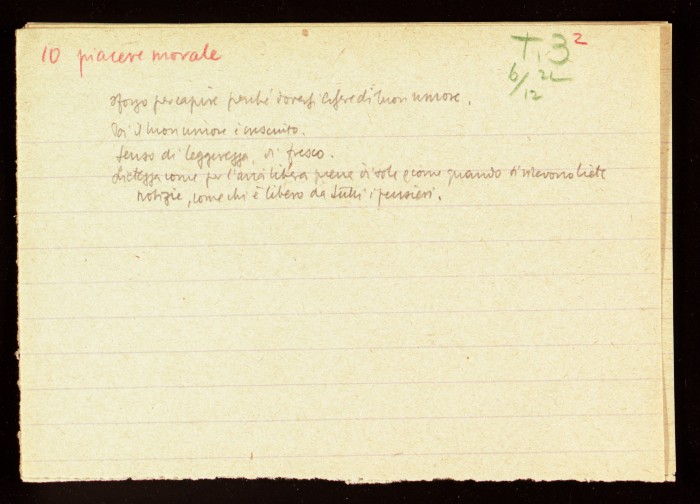 10 piacere morale
T.3 2
6/12 22
sforzo per capire perché doversi essere di buon umore.
Poi il buon umore è cresciuto.
Senso di leggerezza, di fresco.
Lietezza come per l'aria libera piena di sole, come quando si ricevono liete
notizie, come chi è libero da tutti i pensieri.